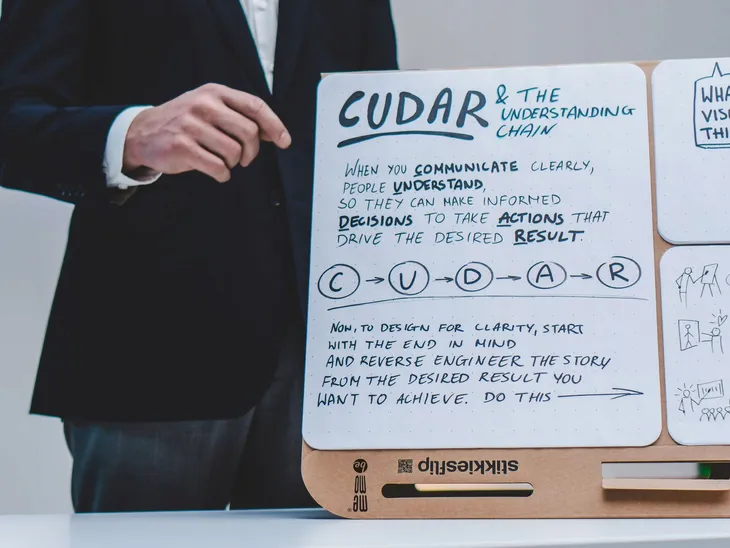 CUDAR & THE
UNDERSTANDING
CHAIN
WHEN YOU COMMUNICATE CLEARLY,
PEOPLE UNDERSTAND,
SO THEY CAN MAKE INFORMED
DECISIONS TO TAKE ACTIONS THAT
DRIVE THE DESIRED RESULT.
C → U → D → A → R
NOW, TO DESIGN FOR CLARITY, START
WITH THE END IN MIND
AND REVERSE ENGINEER THE STORY
FROM THE DESIRED RESULT YOU
WANT TO ACHIEVE. DO THIS →
stikkiesflip